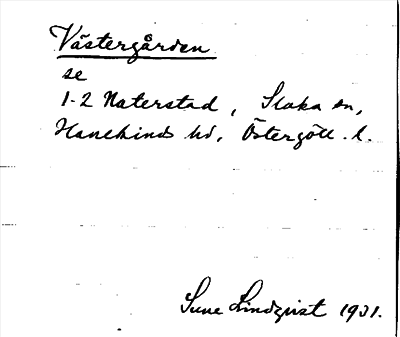 Västergården
se
1-2 Naterstad, Slaka sn,
Hanekinds hd, Östergötl. l.
Sune Lindqvist 1931.